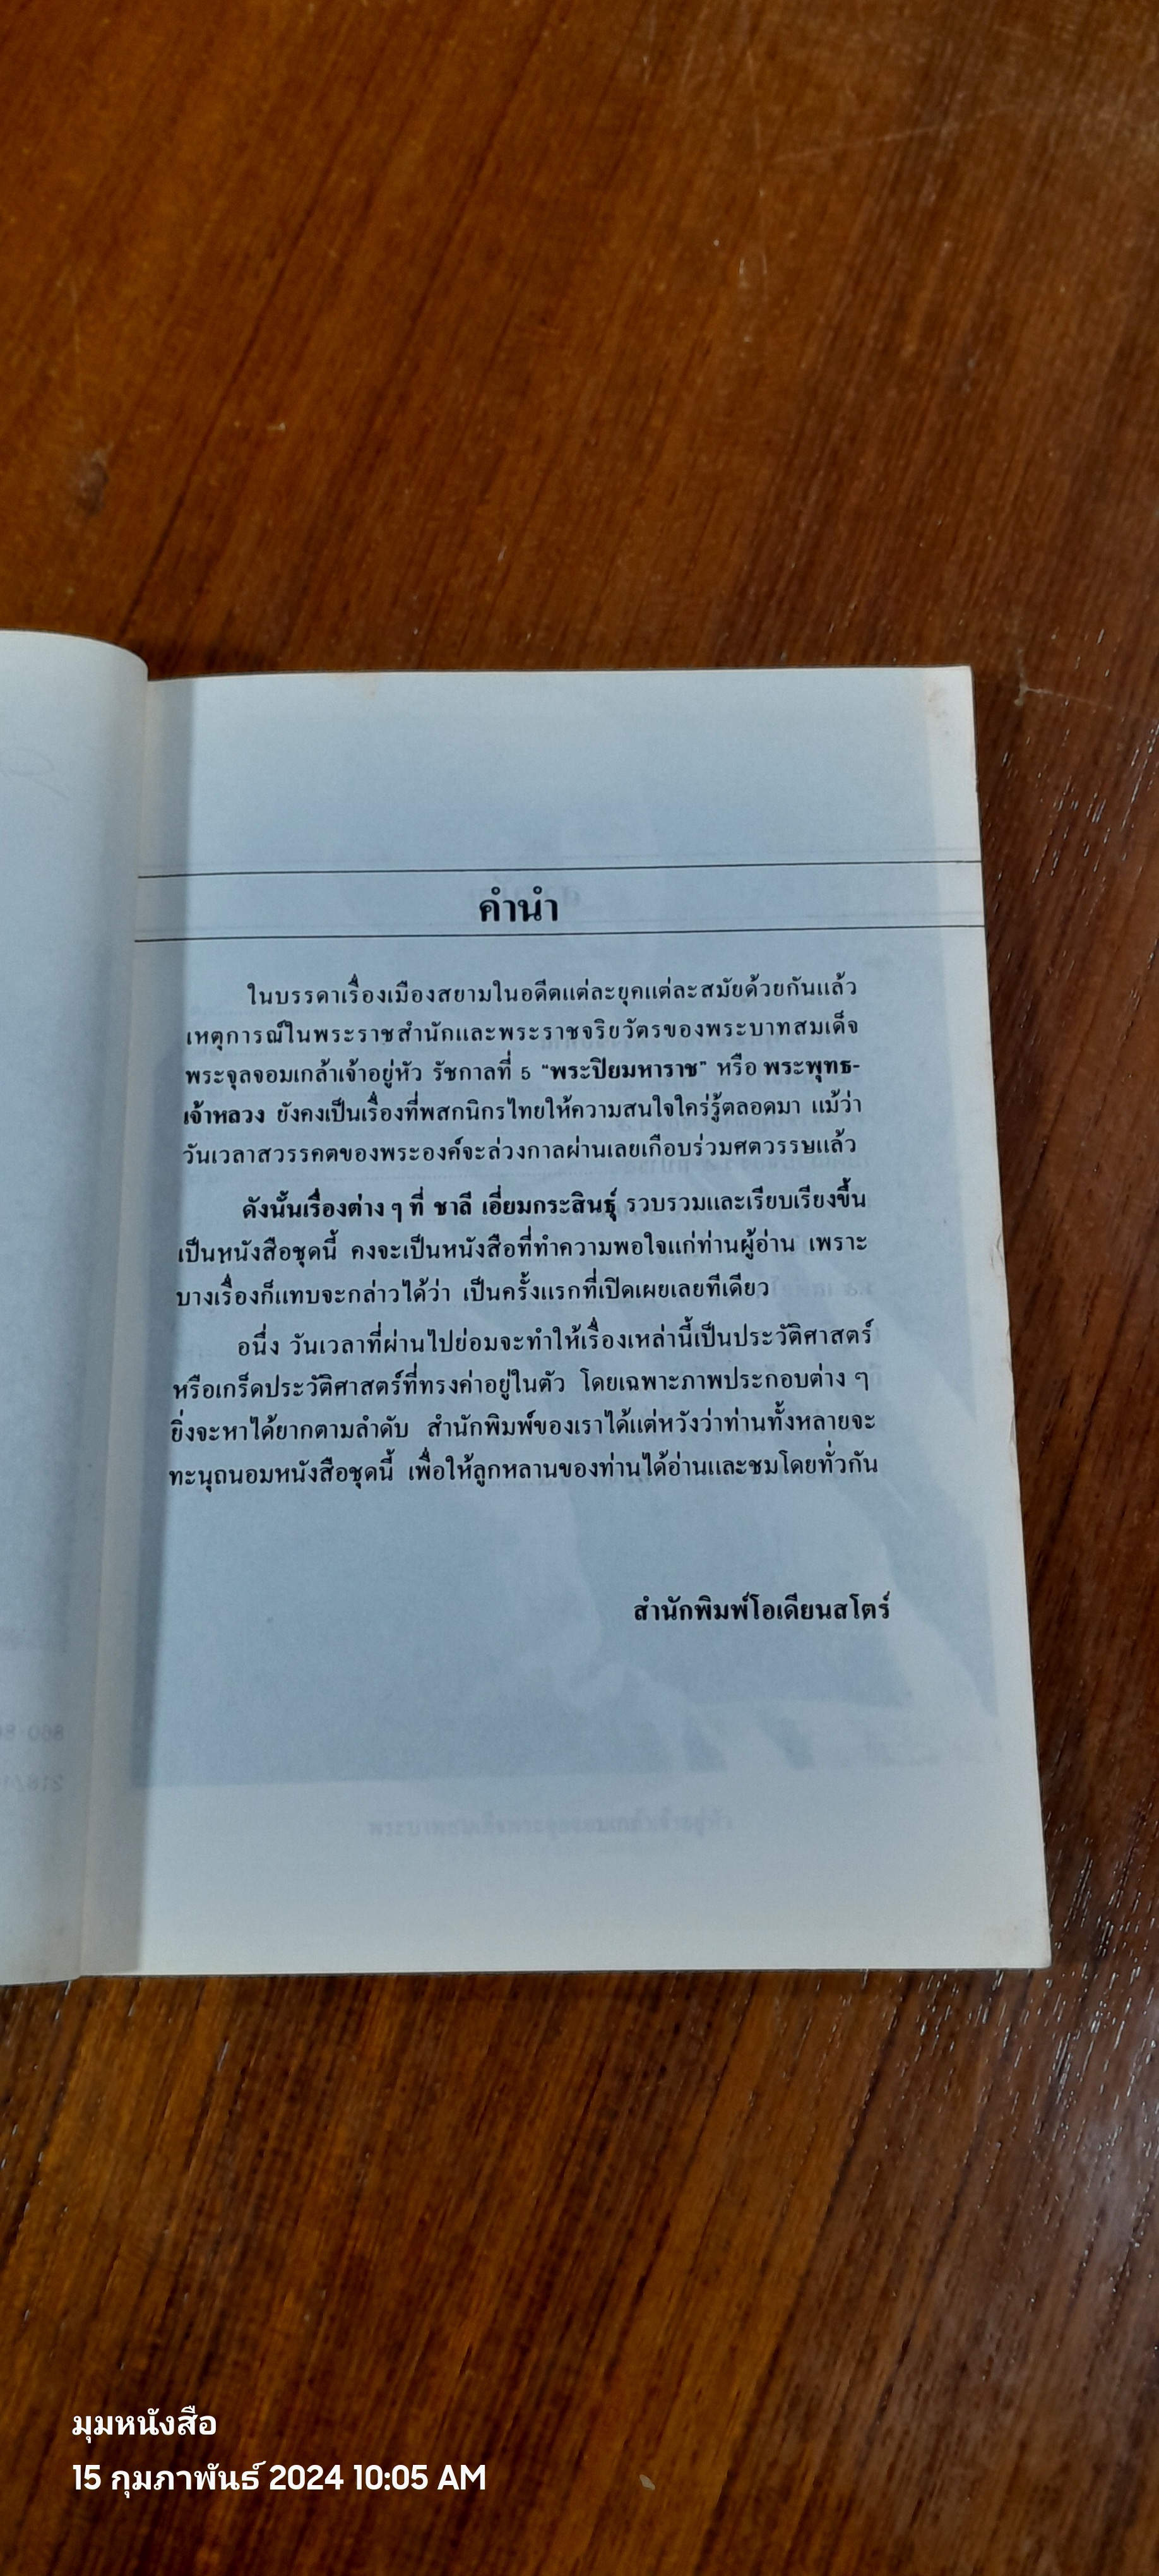 คำนำ
ในบรรดาเรื่องเมืองสยามในอดีตแต่ละยุคแต่ละสมัยด้วยกันแล้ว
เหตุการณ์ในพระราชสำนักและพระราชจริยวัตรของพระบาทสมเด็จ
พระจุลจอมเกล้าเจ้าอยู่หัว รัชกาลที่ 5 "พระปิยมหาราช" หรือ พระพุทธ-
เจ้าหลวง ยังคงเป็นเรื่องที่พสกนิกรไทยให้ความสนใจใคร่รู้ตลอดมา แม้ว่า
วันเวลาสวรรคตของพระองค์จะล่วงกาลผ่านเลยเกือบร่วมศตวรรษแล้ว
ดังนั้นเรื่องต่าง ๆ ที่ ชาลี เอี่ยมกระสินธุ์ รวบรวมและเรียบเรียงขึ้น
เป็นหนังสือชุดนี้ คงจะเป็นหนังสือที่ทำความพอใจแก่ท่านผู้อ่าน เพราะ
บางเรื่องก็แทบจะกล่าวได้ว่า เป็นครั้งแรกที่เปิดเผยเลยทีเดียว
อนึ่ง วันเวลาที่ผ่านไปย่อมจะทำให้เรื่องเหล่านี้เป็นประวัติศาสตร์
หรือเกร็ดประวัติศาสตร์ที่ทรงค่าอยู่ในตัว โดยเฉพาะภาพประกอบต่าง ๆ
ยิ่งจะหาได้ยากตามลำดับ สำนักพิมพ์ของเราได้แต่หวังว่าท่านทั้งหลายจะ
ทะนุถนอมหนังสือชุดนี้ เพื่อให้ลูกหลานของท่านได้อ่านและชมโดยทั่วกัน
สำนักพิมพ์โอเดียนสโตร์
มุมหนังสือ
15 กุมภาพันธ์ 2024 10:05 AM